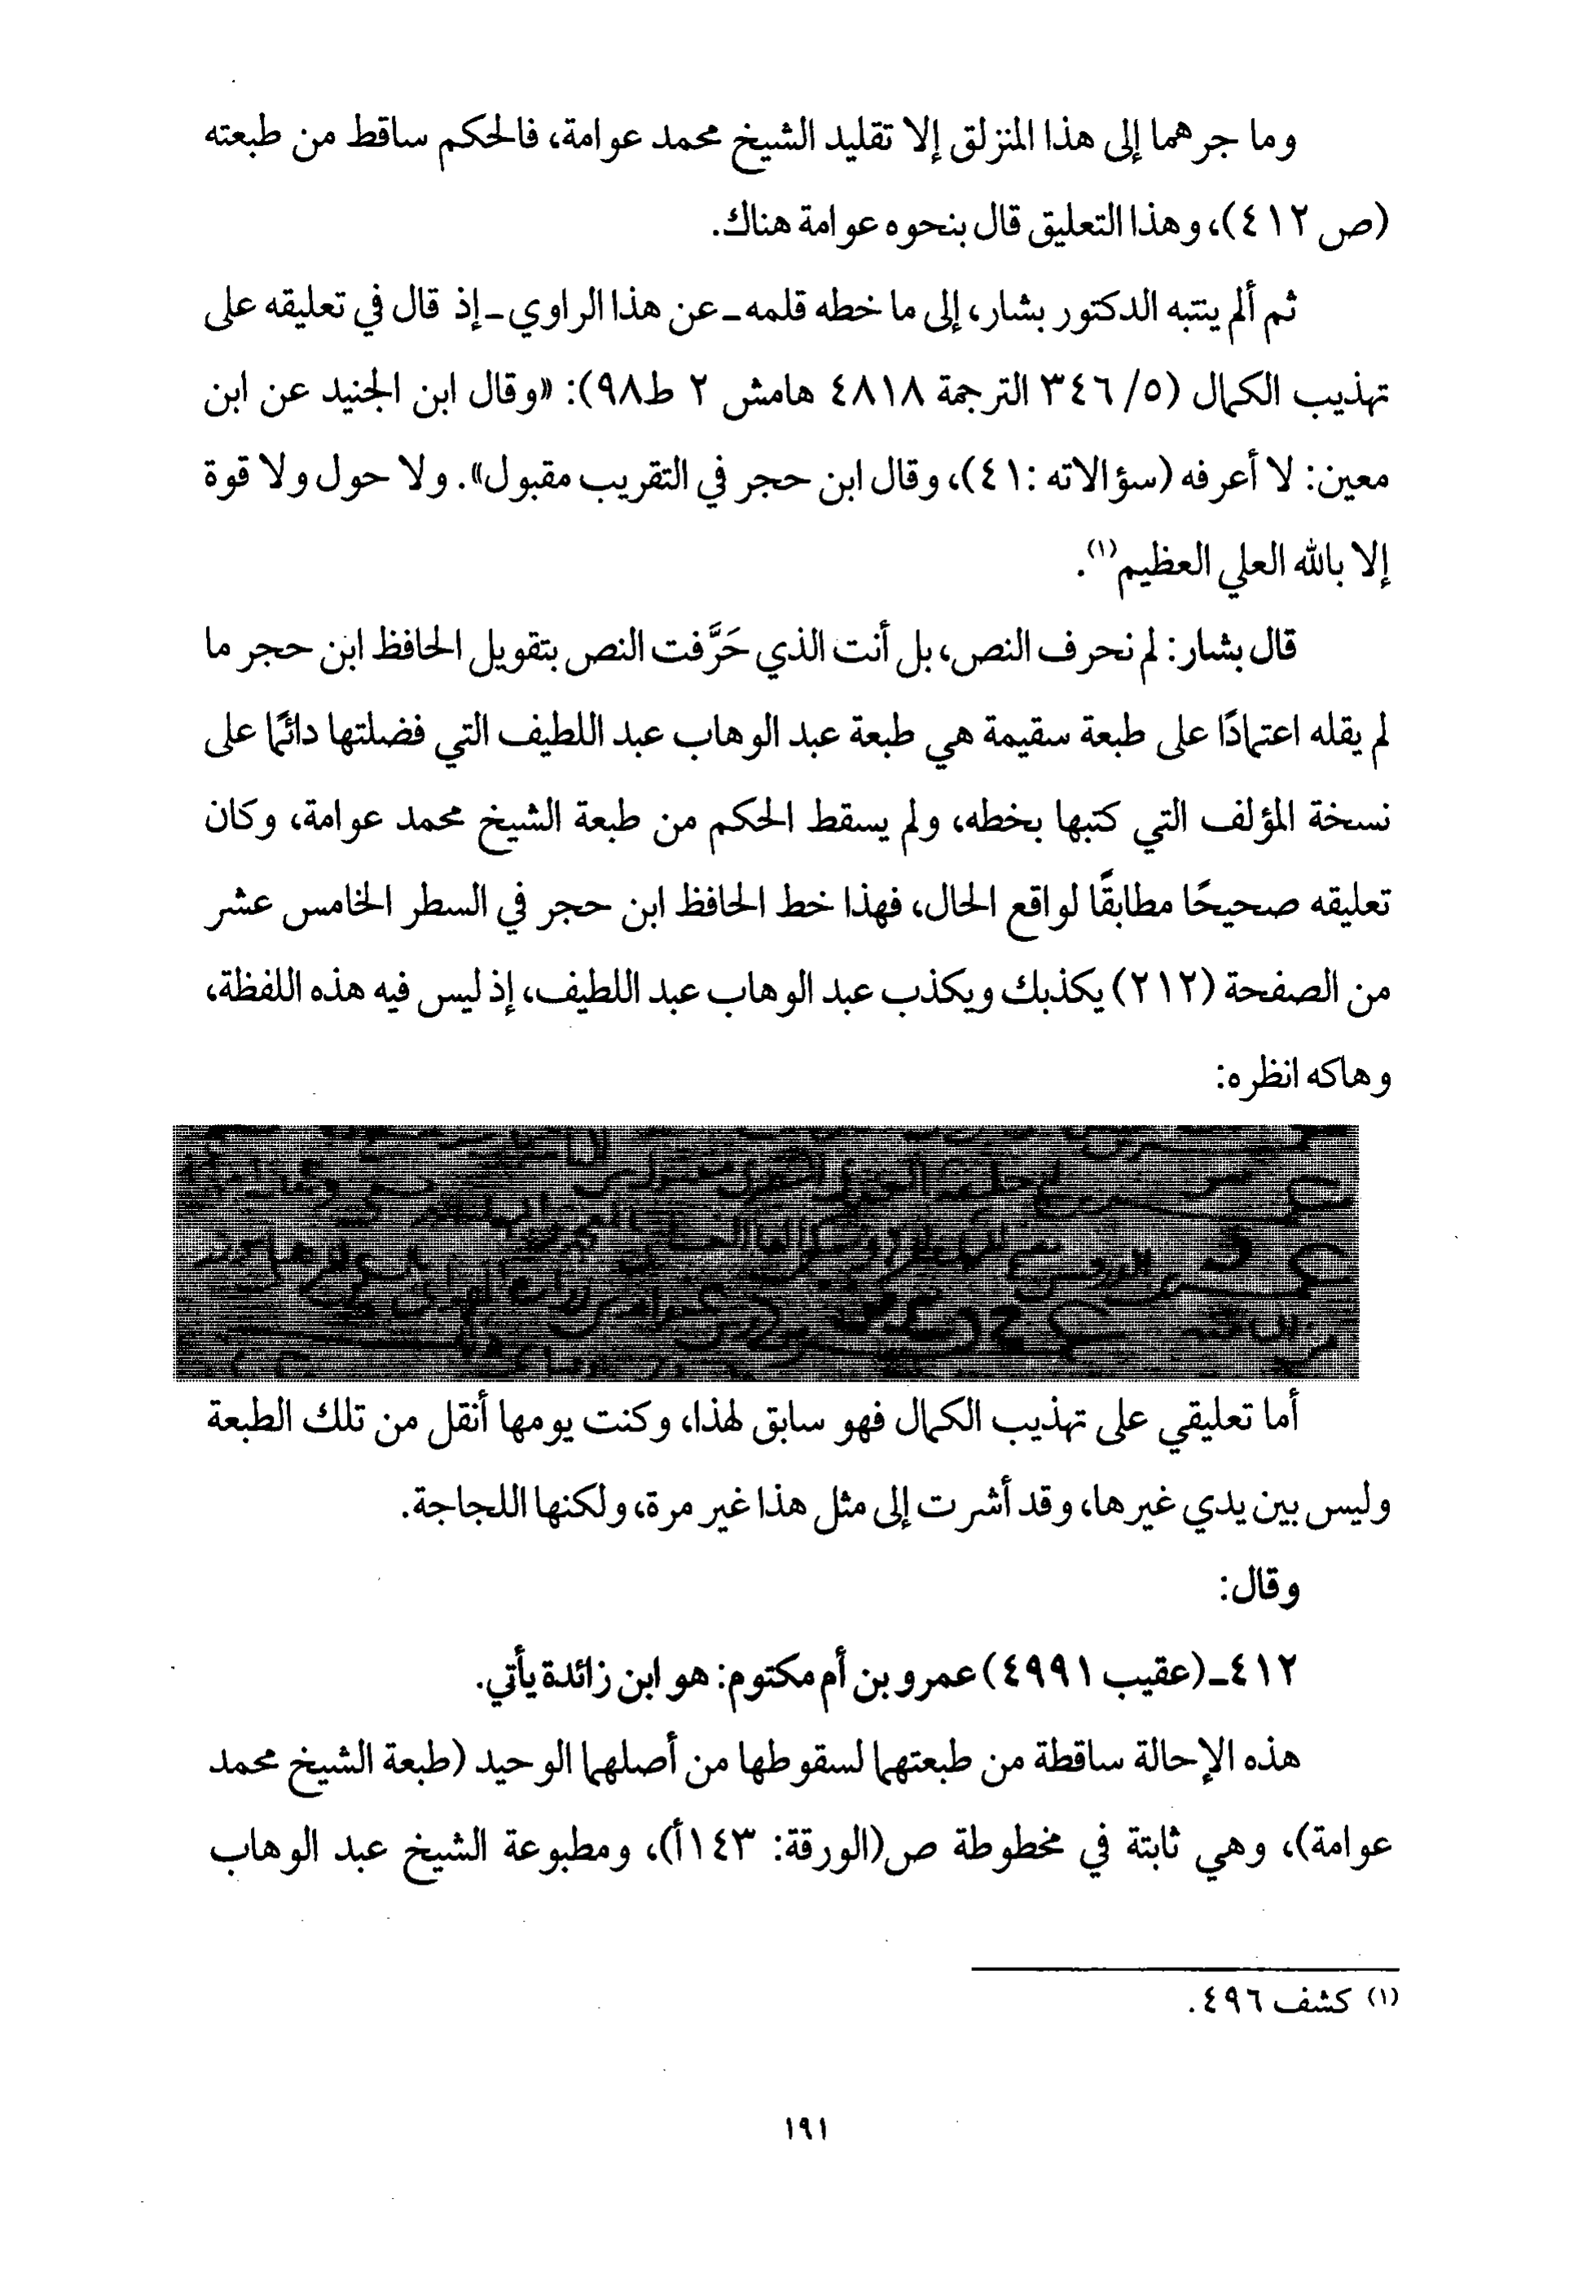 وما جرهما إلى هذا المنزلق إلا تقليد الشيخ محمد عوامة، فالحكم ساقط من طبعته
(ص ٤١٢)، وهذا التعليق قال بنحوه عوامة هناك.
ثم ألم ينتبه الدكتور بشار، إلى ما خطه قلمه ـ عن هذا الراوي ـ إذ قال في تعليقه على
تهذيب الكمال (٥/ ٣٤٦ الترجمة ٤٨١٨ هامش ٢ ط٩٨): «وقال ابن الجنيد عن ابن
معين: لا أعرفه (سؤالاته :٤١)، وقال ابن حجر في التقريب مقبول». ولا حول ولا قوة
إلا بالله العلي العظيم(١).
قال بشار: لم نحرف النص، بل أنت الذي حَرَّفت النص بتقويل الحافظ ابن حجر ما
لم يقله اعتمادًا على طبعة سقيمة هي طبعة عبد الوهاب عبد اللطيف التي فضلتها دائمًا على
نسخة المؤلف التي كتبها بخطه، ولم يسقط الحكم من طبعة الشيخ محمد عوامة، وكان
تعليقه صحيحًا مطابقًا لواقع الحال، فهذا خط الحافظ ابن حجر في السطر الخامس عشر
من الصفحة (٢١٢) يكذبك ويكذب عبد الوهاب عبد اللطيف، إذ ليس فيه هذه اللفظة،
وهاكه انظره:
أما تعليقي على تهذيب الكمال فهو سابق لهذا، وكنت يومها أنقل من تلك الطبعة
وليس بين يدي غيرها، وقد أشرت إلى مثل هذا غير مرة، ولكنها اللجاجة.
وقال:
٤١٢ـ (عقيب ٤٩٩١) عمرو بن أم مكتوم: هو ابن زائدة يأتي.
هذه الإحالة ساقطة من طبعتهما لسقوطها من أصلهما الوحيد (طبعة الشيخ محمد
عوامة)، وهي ثابتة في مخطوطة ص(الورقة: ١٤٣أ)، ومطبوعة الشيخ عبد الوهاب
(١) كشف ٤٩٦.
١٩١